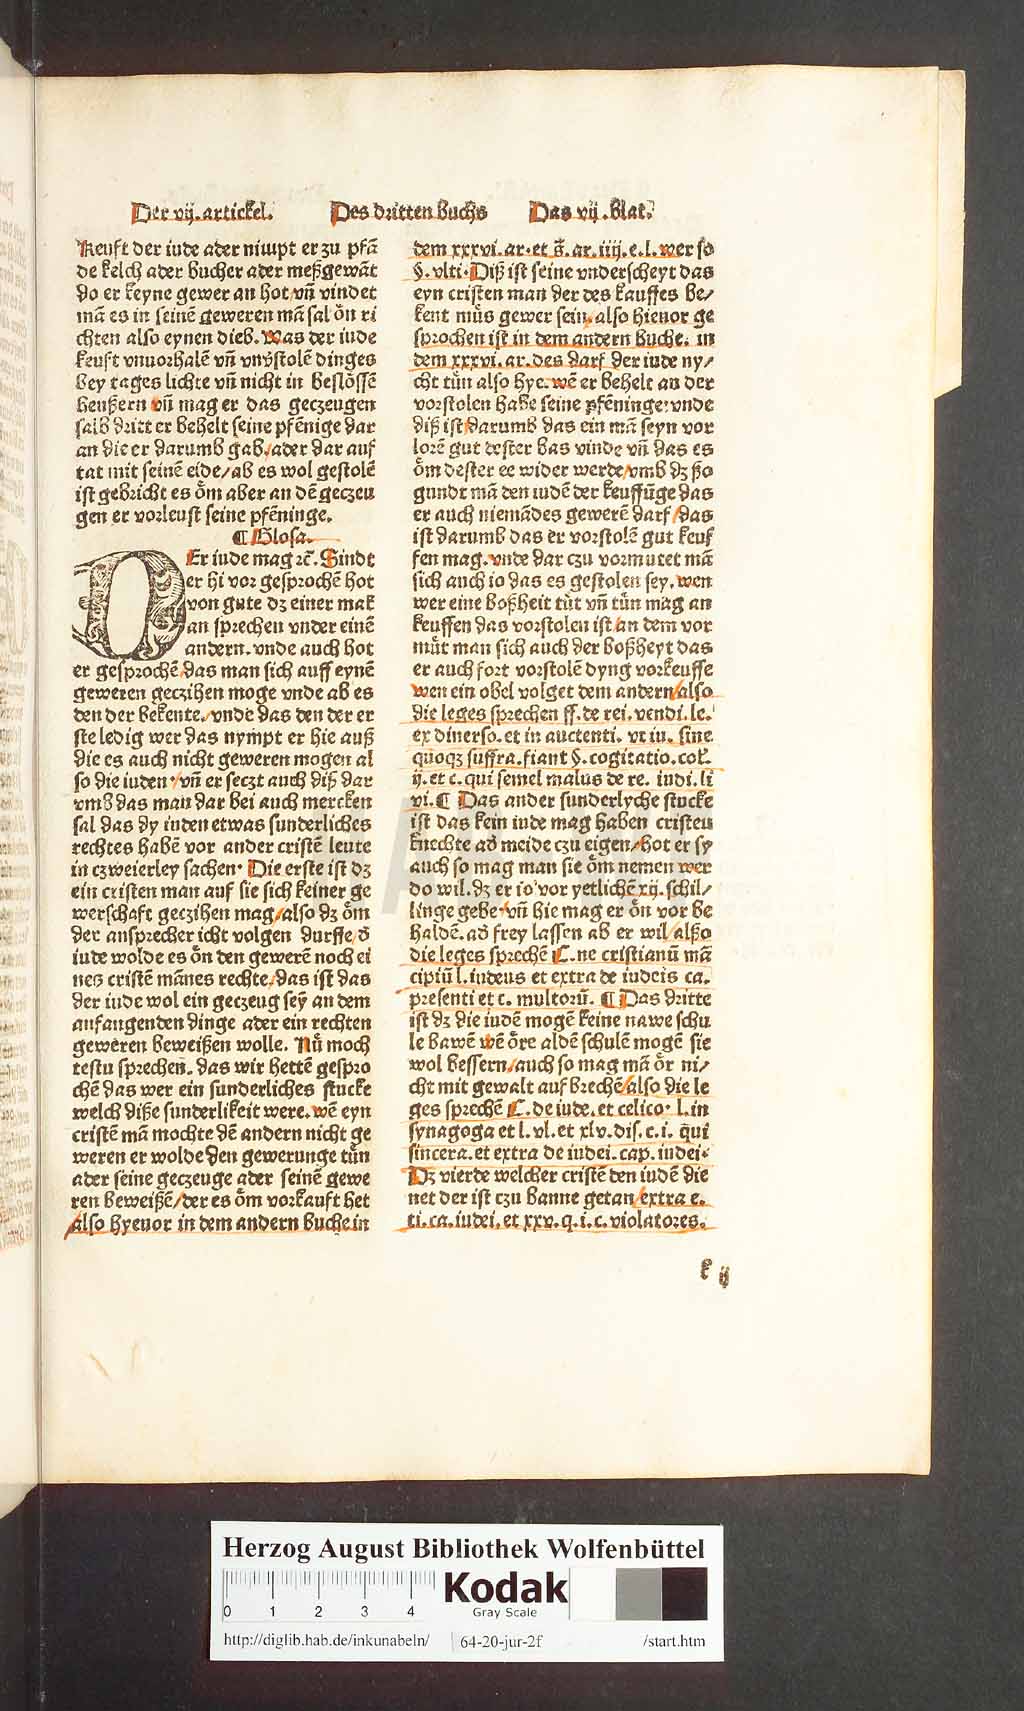 Der vij. artickel. Des dritten buchs Das vij. blat.
Keuft der iude ader nimpt er zu pfā
de kelch ader bucher ader meßgewāt
do er keyne gewer an hot/ vn̄ vindet
mā es in seinē geweren mā sal ȯn ri
chten also eynen dieb. Was der iude
keuft vnuorhalē vn̄ vnv̇stolē dinges
bey tages lichte vn̄ nicht in beslossē
heußern vn̄ mag er das geczeugen
salb dritt er behelt seine pfēnige dar
an die er darumb gab/ ader dar auf
tat mit seinē eide/ ab es wol gestolē
ist gebricht es ȯm aber an dē geczeu
gen er vorleust seine pfēninge.
¶ Glosa.
DEr iude mag ꝛc̄. Sindt
er hi vor gesprochē hot
von gute dz einer mak
an sprechen vnder einē
andern. vnde auch hot
er gesprochē/ das man sich auff eynē
geweren geczihen moge vnde ab es
den der bekente./ vnde das den der er
ste ledig wer das nympt er hie auß
die es auch nicht geweren mogen al
so die iuden·/ vn̄ er seczt auch diß dar
vmb das man dar bei auch mercken
sal das dy iuden etwas sunderliches
rechtes habē vor ander cristē leute
in czweierley sachen· Die erste ist dz
ein cristen man auf sie sich keiner ge
werschaft geczihen mag/ also dz ȯm
der ansprecher icht volgen durffe/ d̄
iude wolde es ȯn den gewerē noch ei
nes cristē mānes rechte/ das ist das
der iude wol ein geczeug seẏ an dem
anfangenden dinge ader ein rechten
geweren beweißen wolle. Nu̇ moch
testu sprechen. das wir hettē gespro
chē das wer ein sunderliches stucke
welch diße sunderlikeit were. wē eyn
cristē mā mochte dē andern nicht ge
weren er wolde den gewerunge tu̇n
ader seine geczeuge ader seinē gewe
ren beweißē/ der es ȯm vorkauft het
also hyeuor in dem andern buche in
dem xxxvi. ar· et s̄. ar. iiij. e. l. wer so
§. vlti· Diß ist seine vnderscheyt das
eyn cristen man der des kauffes be/
kent mu̇s gewer sein/ also hieuor ge
sprochen ist in dem andern buche. in
dem xxxvi. ar. des darf der iude ny/
cht tu̇n also hye. wē er behelt an der
vorstolen habe seine pfēninge: vnde
diß ist/ darumb das ein mā seyn vor
lorē gut dester bas vinde vn̄ das es
ȯm dester ee wider werde/ vmb dz ßo
gundt mā den iudē der keuffūge das
er auch niemādes gewerē darf/ das
ist darumb das er vorstolē gut keuf
fen mag. vnde dar czu vormutet mā
sich auch io das es gestolen sey. wen
wer eine boßheit tu̇t vn̄ tu̇n mag an
keuffen das vorstolen ist/ an dem vor
mu̇t man sich auch der boßheyt das
er auch fort vorstolē dyng vorkeuffe
wen ein obel volget dem andern/ also
die leges sprechen ff. de rei. vendi. le.
ex diuerso. et in auctenti. vt iu. sine
quoqꝫ suffra. fiant §. cogitatio. col̄.
ij. et c. qui semel malus de re. iudi. li
vi. ¶ Das ander sunderlyche stucke
ist das kein iude mag haben cristen
knechte ad̄ meide czu eigen/ hot er sy
auch so mag man sie ȯm nemen wer
do wil. dz er io vor yetlichē xij. schil/
linge gebe·/ vn̄ hie mag er ȯn vor be
haldē. ad̄ frey lassen ab er wil/ alßo
die leges sprechē C. ne cristianū mā
cipiū l. iudeus et extra de iudeis ca.
presenti et c. multorū. ¶ Das dritte
ist dz die iudē mogē keine nawe schu
le bawē wē ȯre aldē schulē mogē sie
wol bessern/ auch so mag mā ȯr ni/
cht mit gewalt auf brechē/ also die le
ges sprechē C. de iude. et celico· l. in
synagoga et l. vl. et xlv. dis. c. i. qui
sincera. et extra de iudei. cap. iudei·
Dz vierde welcher cristē den iudē die
net der ist czu banne getan/ extra e.
ti. ca. iudei. et xxv. q. i. c. violatores.
k ij
Herzog August Bibliothek Wolfenbüttel
0 1 2 3 4
Kodak
Gray Scale
http://diglib.hab.de/inkunabeln/ 64-20-jur-2f /start.htm